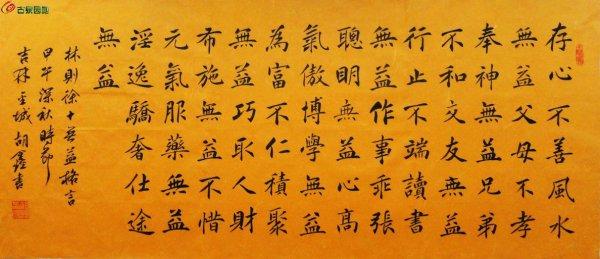 存心不善風水
無益父母不孝
奉神無益兄弟
不和交友無益
行止不端讀書
無益作事乖張
聰明無益心高
氣傲博學無益
為富不仁積聚
無益巧取人財
布施無益不惜
元氣服藥無益
淫逸驕奢仕途
無益
林則徐十無益格言
甲午深秋時節
吉林城胡鑫書
古泉园地